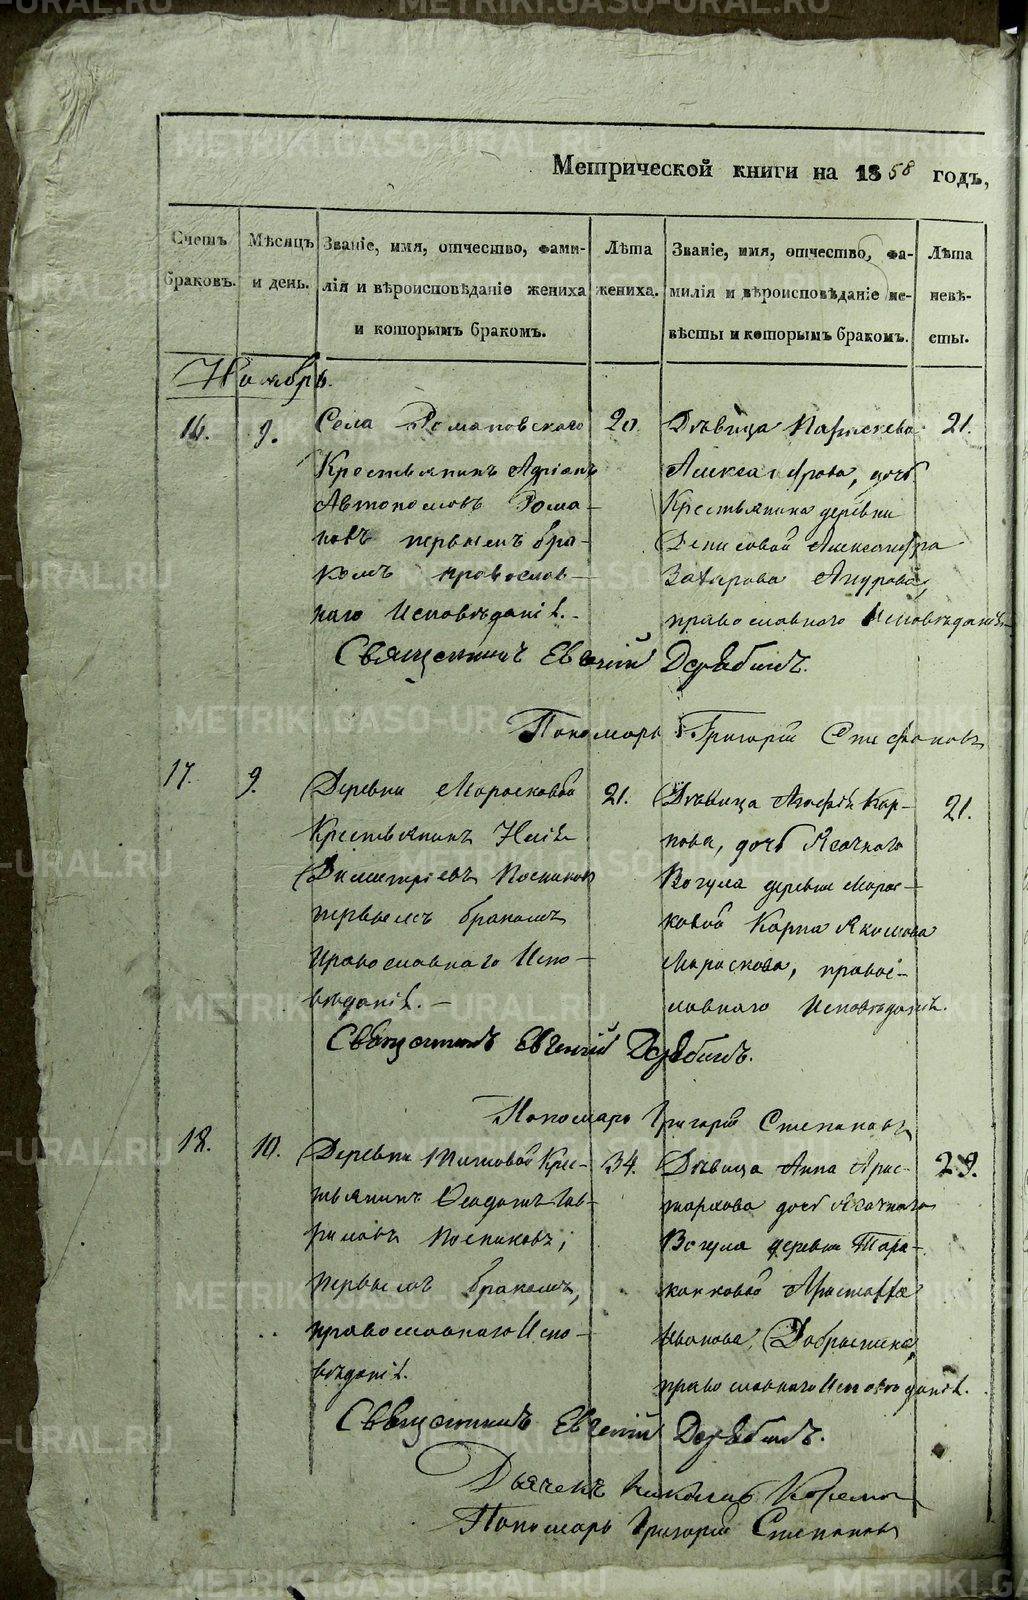 METRIKI.GASO-URAL.RU
Метрической книги на 1858 годъ,
Счетъ браковъ.
Мѣсяцъ и день.
Званіе, имя, отчество, фами-
лія и вѣроисповѣданіе жениха
и которымъ бракомъ.
Лѣта жениха.
Званіе, имя, отчество, фа-
милія и вѣроисповѣданіе не-
вѣсты и которымъ бракомъ.
Лѣта невѣ-
сты.
Ноябрь.
16. 9.
Села Романовскаго
Крестьянинъ Адріанъ
Автономовъ Рома-
новъ первымъ бра-
комъ православ-
наго Исповѣданія.
20.
Дѣвица Параскева
Александрова, дочь
Крестьянина деревни
Денисовой Александра
Захарова
православнаго Исповѣданія
21.
Священникъ Евгеній Дерябинъ.
Пономарь Григорій Стефановъ
17. 9.
Деревни Морасковой
Крестьянинъ Илія
Димитріевъ Посниковъ
первымъ бракомъ
Православнаго Испо-
вѣданія.
21.
Дѣвица Агафія Кар-
пова, дочь Ясачнаго
Вогула деревни Морас-
ковой Карпа Якимова
Мораскова, правос-
лавнаго Исповѣданія.
21.
Священникъ Евгеній Дерябинъ.
Пономарь Григорій Степановъ
18. 10.
Деревни Титовой Крес-
тьянинъ Феодотъ Гав-
риловъ Посниковъ,
первымъ бракомъ,
православнаго Испо-
вѣданія.
34.
Дѣвица Анна Арис-
тархова дочь Ясачнаго
Вогула деревни Тара-
канковой Аристарха
Иванова
православнаго Исповѣданія.
29.
Священникъ Евгеній Дерябинъ.
Дьячекъ Николай
Пономарь Григорій Степановъ